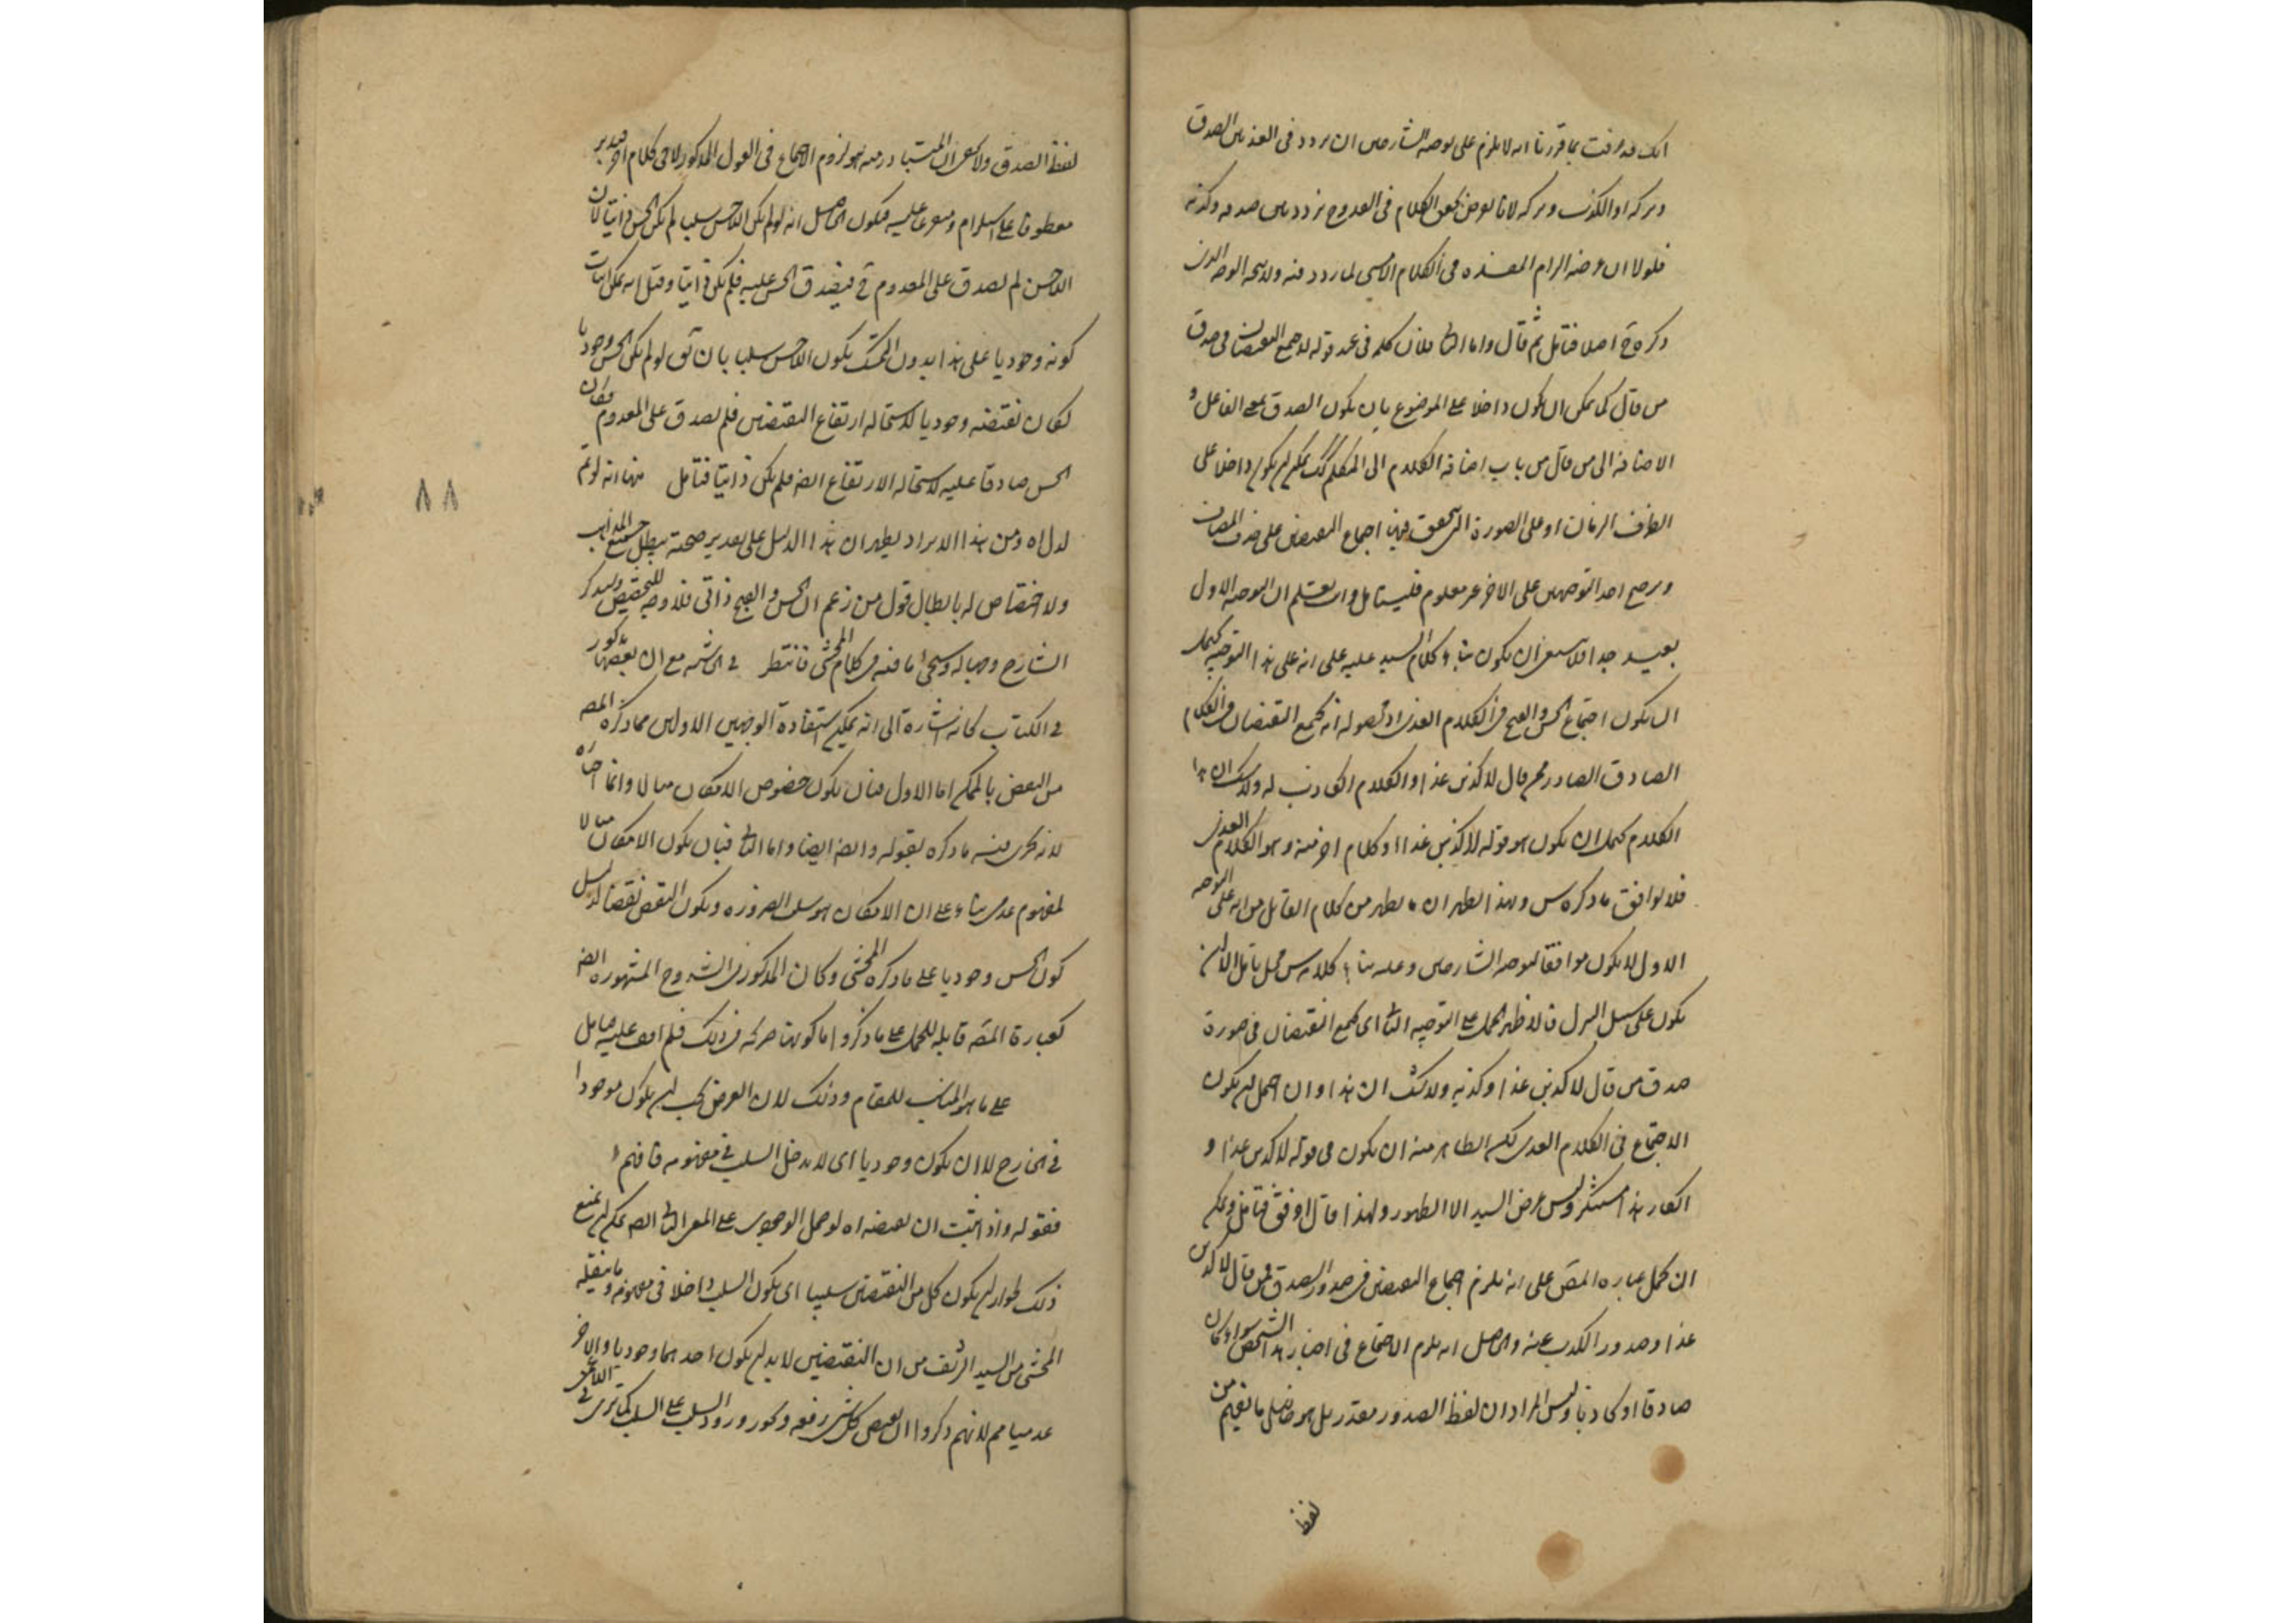 انك قد عرفت بما قررنا انه لا يلزم على توجيه الشارحين ان يردد فى الغد بين الصدق
وتركه او الكذب وتركه لانا نفرض تحقق الكلام فى الغد وح نردد بين صدقه وكذبه
فلولا ان غرضه الزام المفسده فى الكلام الامسى لما ردد فيه ولا يتجه الوجه الذى
ذكره ح اصلا فتامل ثم قال واما الثا فلان كلمه فى عند قوله لاجتمع النقيضان فى صدق
من قال كما يمكن ان يكون داخلا على الموضوع بان يكون الصدق بمعنى الفاعل و
الاضافه الى من قال من باب اضافة الكلام الى المتكلم كك يمكن ان يكون داخلا على
الظرف الزمان او على الصورة التى تحقق فيها اجتماع النقيضين على حذف المضاف
وترجيح احد التوجهين على الاخر غير معلوم فليتامل وانت تعلم ان التوجه الاول
بعيد جدا فلا ينبغى ان يكون بناء كلام السيد عليه على انه على هذا التوجيه يحتمل
ان يكون اجتماع الحسن والقبح فى الكلام الغدى اذ محصوله انه يجتمع النقيضان فى الكلام
الصادق الصادر عمن قال لاكذبن غدا او الكلام الكاذب له ولا شك ان هذا
الكلام يحتمل ان يكون هو قوله لاكذبن غدا او كلام اخر منه وهو الكلام الغدى
فلا يوافق ما ذكره س ولهذا ظهر ان ما يظهر من كلام القائل من انه على التوجه
الاول لا يكون موافقا لتوجيه الشارحين وعليه بناء كلام س محل تامل الا ان
يكون على سبيل التنزل فالاظهر الحمل على التوجيه الثا اى يجتمع النقيضان فى صورة
صدق من قال لاكذبن غدا وكذبه ولا شك ان هذا وان احتمل ان يكون
الاجتماع فى الكلام الغدى لكن الظاهر منه ان يكون فى قوله لاكذبن غدا و
انكار هذا مستنكر وليس غرض السيد الا الظهور ولهذا قال اوفق فتامل ويمكن
ان يحمل عباره المص على انه يلزم اجتماع النقيضين فى صدور الصدق عمن قال لاكذبن
غدا وصدور الكذب عنه والحاصل انه يلزم الاجتماع فى اخبار هذا الشخص سواء كان
صادقا او كاذبا وليس المراد ان لفظ الصدور مقدر بل هو حاصل ما يفهم من
لفظ
لفظ الصدق ولا يخفى ان المتبادر منه هو لزوم الاجتماع فى القول المذكور لا فى كلام اخر فتدبر
معطوفا على استلزام ومتفرعا عليه فيكون الحاصل انه لو لم يكن اللاحسن سلبا لم يكن الحسن ذاتيا لان
اللاحسن لم يصدق على المعدوم ح فيصدق الحسن عليه فلم يكن ذاتيا وقيل انه يمكن اثبات
كونه وجوديا على هذا بدون التمسك بكون اللاحسن سلبا بان يق لو لم يكن الحسن وجوديا
لكان نقيضه وجوديا لاستحاله ارتفاع النقيضين فلم يصدق على المعدوم فكان
الحسن صادقا عليه لاستحاله الارتفاع ايضه فلم يكن ذاتيا فتامل منها انه لو تم
لدل اه ومن هذا الايراد يظهر ان هذا الدليل على تقدير صحته يبطل جميع المذاهب
ولا اختصاص له بابطال قول من زعم ان الحسن والقبح ذاتى فلا وجه للتخصيص وسيذكر
الشارح وجها له وسيجئ ما فيه فى كلام المحشى فانتظر فى الحاشيه مع ان بعضها مذكور
فى الكتاب كانه اشارة الى انه يمكن استفادة الوجهين الاولين مما ذكره المص
من النقض بالممكن اما الاول فبان يكون خصوص الامكان مثالا وانما اختاره
لانه يجرى فيه ما ذكره بقوله وايضه ايضا واما الثا فبان يكون الامكان مثالا
لمفهوم عدمى بناء على ان الامكان هو سلب الضروره ويكون النقض نقضا لدليل
كون الحسن وجوديا على ما ذكره المحشى وكان المذكور فى الشروح المشهوره ايضه
كعبارة المص قابله للحمل على ما ذكروا ما كونها صريحه فى ذلك فلم اقف عليه فتامل
على ما هو المناسب للمقام وذلك لان العرض يجب ان يكون موجودا
فى الخارج لا ان يكون وجوديا اى لا يدخل السلب فى مفهومه فافهم
فقوله واذا ثبت ان نقيضه اه لو حمل الوجودى على المعنى الثا ايضه يمكن ان يمنع
ذلك لجواز ان يكون كل من النقيضين سلبيا اى يكون السلب داخلا فى مفهومه وما نقله
المحشى من السيد الشريف من ان النقيضين لا بد ان يكون احدهما وجوديا والاخر
عدميا مم لانهم ذكروا ان نقيض كل شئ رفعه وجوزوا ورود السلب على السلب كما ترى فى اللاعمى
٨٨